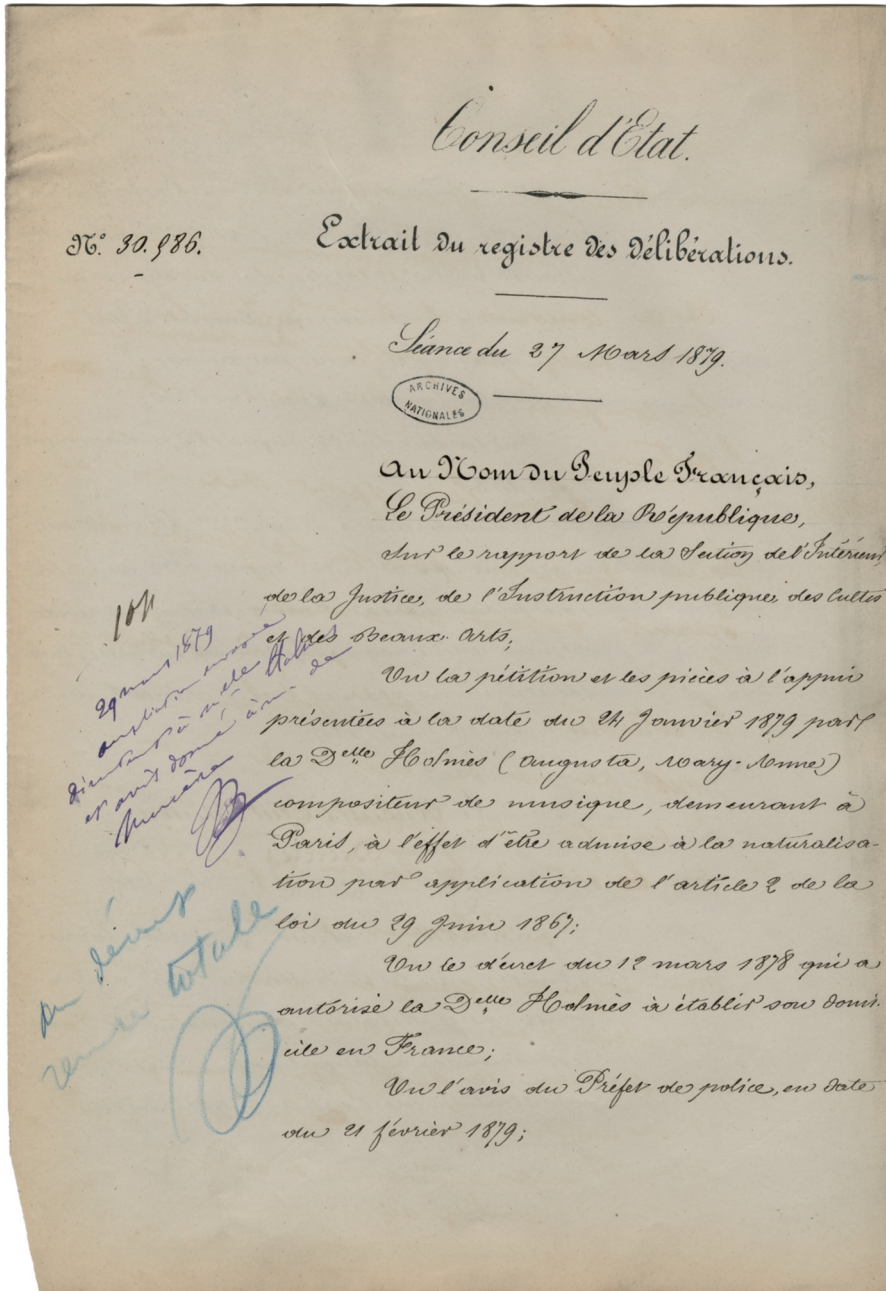 Conseil d'Etat.
N.° 30.986.
Extrait du registre des délibérations.
Séance du 27 Mars 1879.
ARCHIVES
NATIONALES
Au Nom du Peuple Français,
Le Président de la République,
Sur le rapport de la Section de l'Intérieur,
de la Justice, de l'Instruction publique, des Cultes
et des Beaux-Arts;
Vu la pétition et les pièces à l'appui
présentées à la date du 24 Janvier 1879 par
la Delle Holmès (Augusta, Mary-Anne)
compositeur de musique, demeurant à
Paris, à l'effet d'être admise à la naturalisa-
tion par application de l'article 2 de la
loi du 29 Juin 1867;
Vu le décret du 12 mars 1878 qui a
autorisé la Delle Holmès à établir son domi-
cile en France;
Vu l'avis du Préfet de police, en date
du 21 février 1879;
29 mars 1879
ampliation envoyée
directement à Melle Holmès
et avis donné à m. de
du décret
remise totale